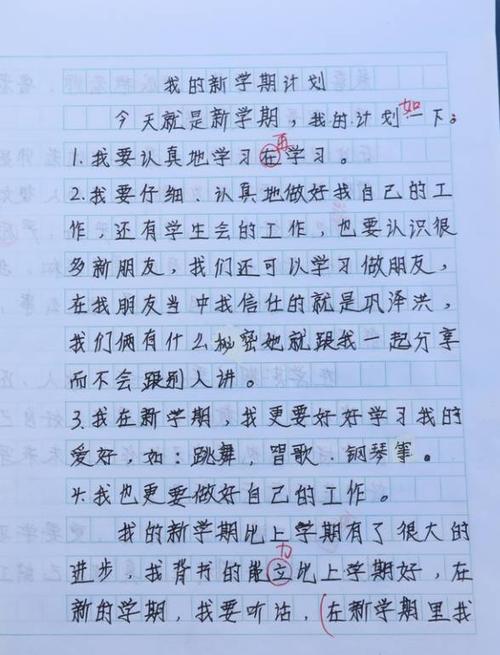 我的新学期计划
今天就是新学期，我的计划如一下：
1.我要认真地学习在再学习。
2.我要仔细、认真地做好我自己的工
作，还有学生会的工作，也要认识很
多新朋友，我们还可以学习做朋友，
在我朋友当中我信仕的就是巩泽洪，
我们俩有什么秘密她就跟我一起分享
而不会跟别人讲。
3.我在新学期，我更要好好学习我的
爱好，如：跳舞，唱歌、钢琴筝。
4.我也更要做好自己的工作。
我的新学期比上学期有了很大的
进步，我背书的能立力比上学期好，在
新的学期，我要听话，(在新学期里我